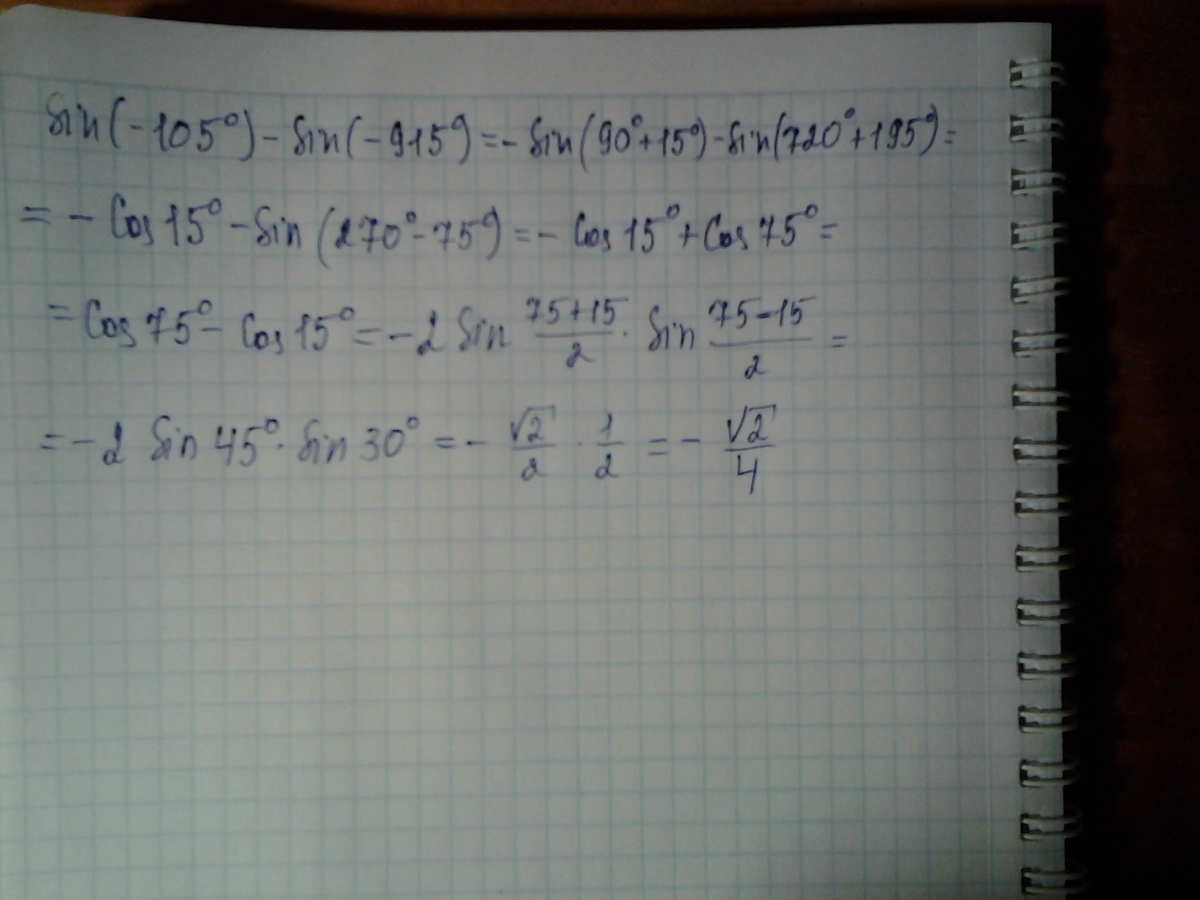 Sin(-105°)-Sin(-915°)=-Sin(90°+15°)-Sin(720°+195°)=
=-Cos15°-Sin(270°-75°)=-Cos15°+Cos75°=
=Cos75°-Cos15°=-2Sin (75+15)/2 · Sin (75-15)/2 =
=-2 Sin 45°·Sin 30° =- √2/2 · 1/2 =- √2/4